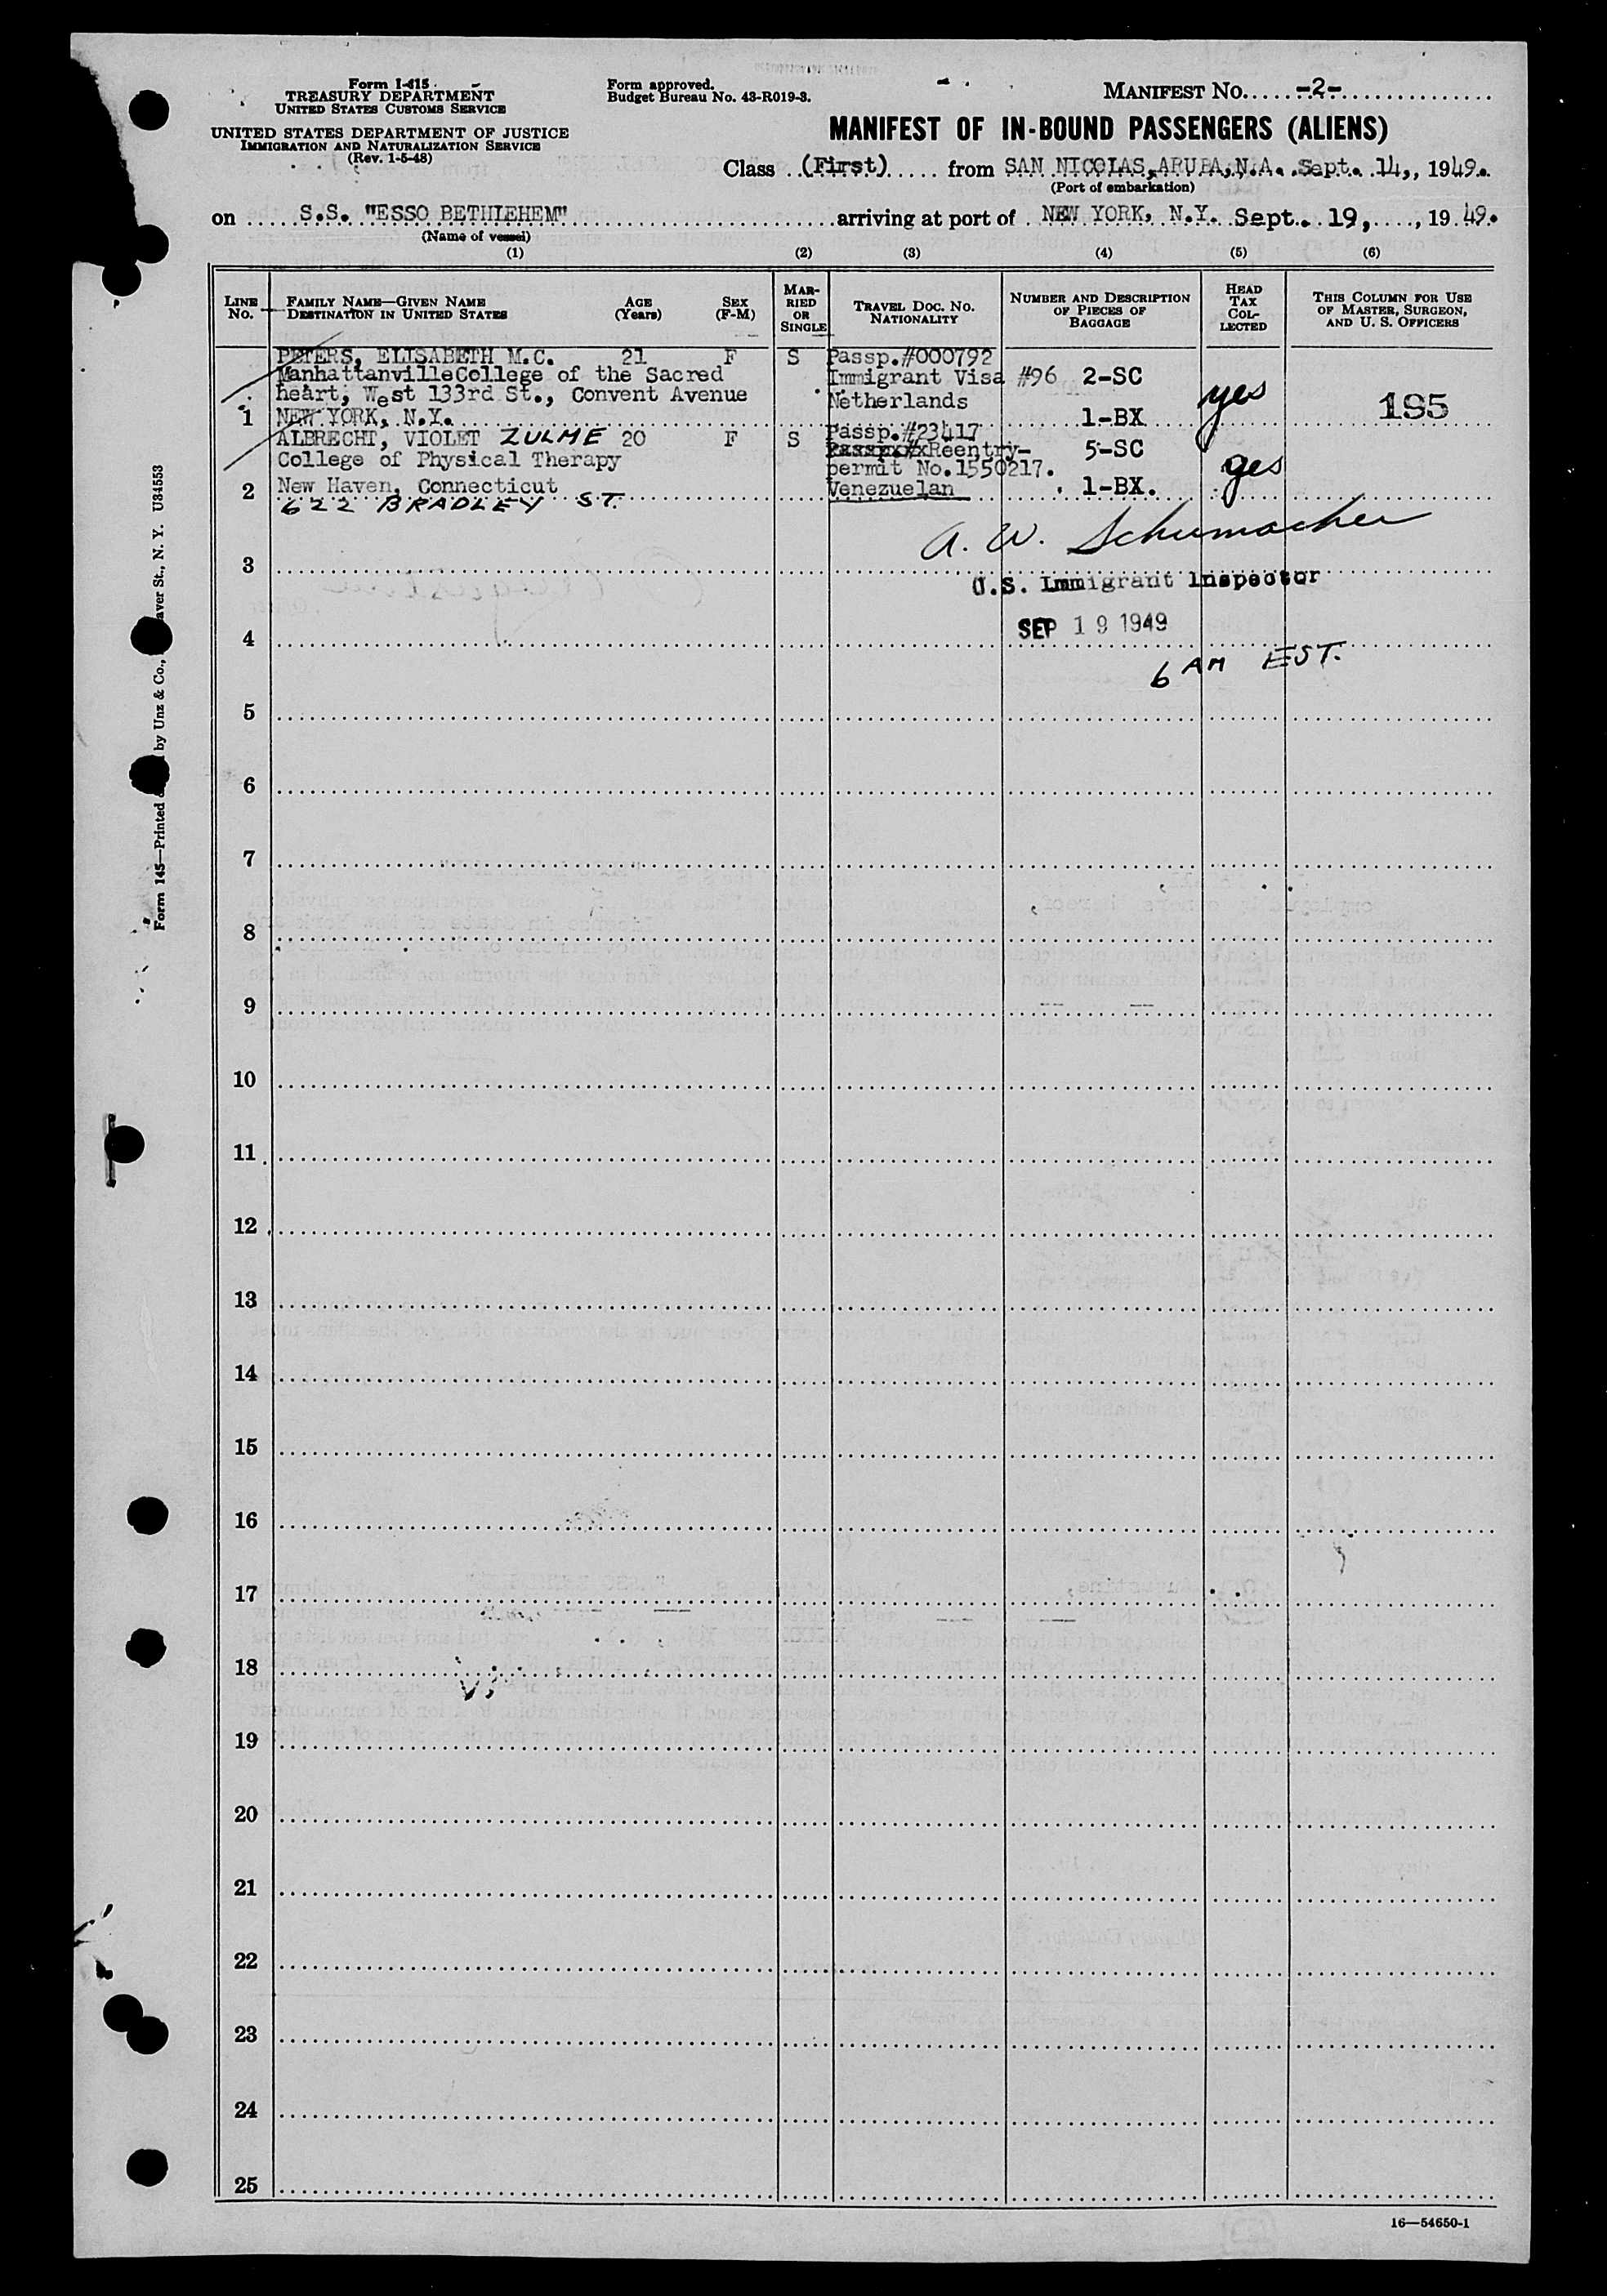 Form I-415
TREASURY DEPARTMENT
UNITED STATES CUSTOMS SERVICE
UNITED STATES DEPARTMENT OF JUSTICE
IMMIGRATION AND NATURALIZATION SERVICE
(Rev. 1-5-48)
Form approved.
Budget Bureau No. 43-R019-3.
MANIFEST No. -2-
MANIFEST OF IN-BOUND PASSENGERS (ALIENS)
Class (First) from SAN NICOLAS, ARUBA, N.A. Sept. 14, 1949.
(Port of embarkation)
on S.S. "ESSO BETHLEHEM" arriving at port of NEW YORK, N.Y. Sept. 19, 1949.
(Name of vessel)
(1) (2) (3) (4) (5) (6)
LINE No. FAMILY NAME—GIVEN NAME DESTINATION IN UNITED STATES AGE (Years) SEX (F-M) MARRIED OR SINGLE TRAVEL DOC. NO. NATIONALITY NUMBER AND DESCRIPTION OF PIECES OF BAGGAGE HEAD TAX COLLECTED THIS COLUMN FOR USE OF MASTER, SURGEON, AND U. S. OFFICERS
PETERS, ELISABETH M.C. 21 F S Passp.#000792
Manhattanville College of the Sacred Immigrant Visa #96 2-SC
heart, West 133rd St., Convent Avenue Netherlands yes 195
1 NEW YORK, N.Y. 1-BX
ALBRECHT, VIOLET ZULME 20 F S Passp.#23417
College of Physical Therapy Reentry- 5-SC
permit No.1550217. yes
2 New Haven, Connecticut Venezuelan 1-BX.
622 BRADLEY ST.
A. W. Schumacher
3
U.S. Immigrant Inspector
SEP 19 1949
4
6 AM EST.
5
6
7
8
9
10
11
12
13
14
15
16
17
18
19
20
21
22
23
24
25
16—54650-1
Form 145—Printed by Unz & Co., aver St., N. Y. U34553